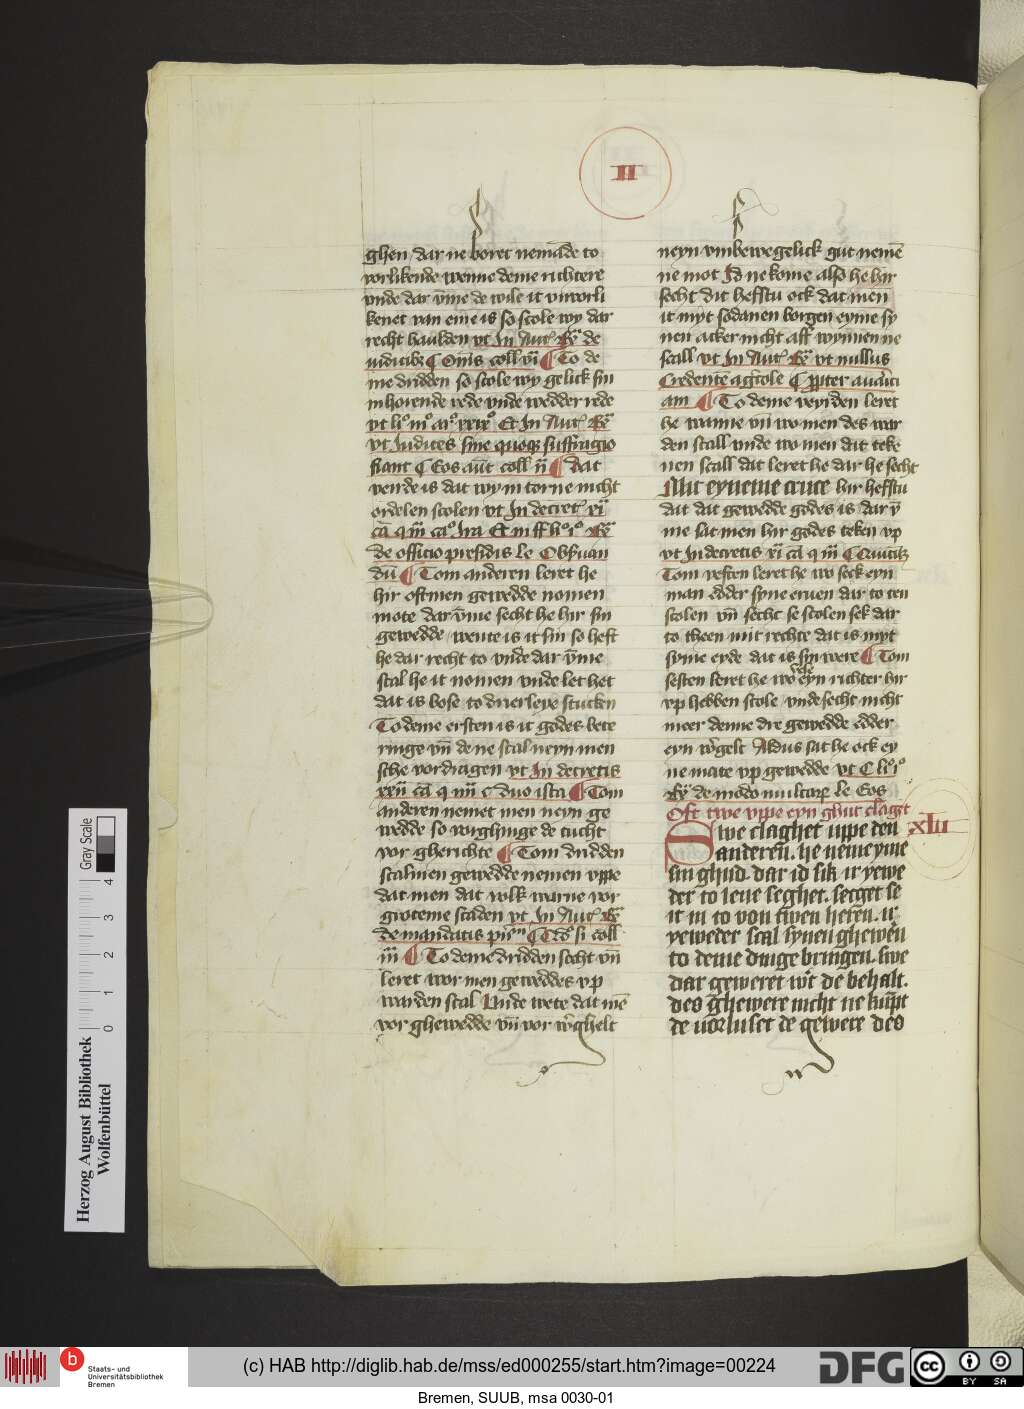 II
ghen dar ne boret nemāde to
vorlikende wenne deme richtere
vnde dar v̄me de wile it vnvorli
kenet van eme is so scole wy dar
recht haulden vt In Aut͛ Rͨ de
iudicibꝫ ¶ Oīnis coll vii ¶ To de
me dridden so scole wy gelick sin
in horende rede vnde wedder rede
vt li͛ iii͛ ar͛ xxix͛ Et In Aut͛ Rͨ
vt Iudices sine quoqꝫ suffragio
fiant ¶ Eos aūt coll ii ¶ Dat
verde is dat wy in torne nicht
ordelen scolen vt In decret͛ xi
de officio presidis le Obseruan
dū ¶ Tom anderen leret he
hir oftmen gewedde nomen
mote dar v̄me secht he hir sin
gewedde wente is it sin so heft
he dar recht to vnde dar v̄me
scal he it nomen vnde let het
dat is bose to drierleye stucken
To deme ersten is it godes bete
ringe vn̄ de ne scal neyn men
sche vordragen vt In decretis
xxii cā q iiii c duo ista ¶ Tom
anderen nemet men neyn ge
wedde so wighinge de tucht
vor gherichte ¶ Tom dridden
scalmen gewedde nemen vppe
dat men dat volk warne vor
groteme scaden vt In Aut͛ Rͨ
de mandatis pri͛ ¶ Tōs si coll
iii ¶ To deme dridden secht vn̄
leret wor men geweddes vp
warden scal Vnde wete dat mē
vor ghewedde vn̄ vor w͛ghelt
neyn vmbewegelick gut nemē
ne mot Id ne kome also he hir
secht dit hefstu ock dat men
it myt sodanen borgen eyme sy
nen acker nicht aff wynnen ne
scall vt In Aut͛ Rͨ vt nullus
Credentē agricole ¶ Ppter auarici
am ¶ To deme veyrden leret
he wanne vn̄ wo men des war
den scall vnde wo men dat teke
nen scall dat leret he dar he secht
Mit eyneme cruce hir hefstu
dat dat gewedde godes is dar v̄
me sat men hir godes teken vp
vt In decretis xi cā q iii ¶ Ciuitas
Tom veften leret he wo seck eyn
man edder syne eruen dar to ten
scolen vn̄ secht se scolen sek dar
to theen mit rechte dat is myt
syme eyde dat is syn were ¶ Tom
sesten leret he wo vele eyn richter hir
vp hebben scole vnde secht nicht
meer denne dre gewedde edder
eyn w͛gelt Aldus sat he ock ey
ne mate vp gewedde vt C li͛ i͛
Rͨ de modo mulctarꝫ le Eos
Oft twe vppe eyn ghut claget
xlii
Swe claghet uppe den
anderen. he neme yme
sin ghud. dar id sik ir yewe
der to ieue seghet. secget se
it in to von twen heren. ir
yeweder scal synen ghewen
to deme dinge bringen. swe
dar geweret wirt de behalt.
des ghewere nicht ne kumpt
de uorluset de gewere des